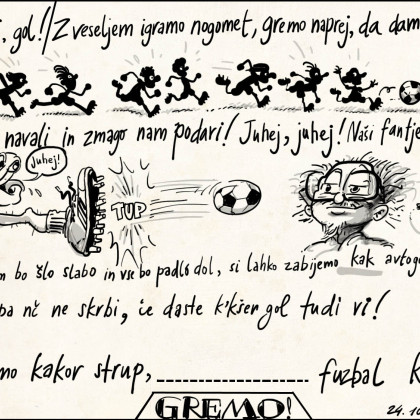 , gol!/Z veseljem igramo nogomet, gremo naprej, da dam
navali in zmago nam podari! Juhej, juhej! Naši fantje
Juhej!
TUP
m bo šlo slabo in vse bo padlo dol, si lahko zabijemo kak avtogo
pa nč ne skrbi, če daste k'kšer gol tudi vi!
mo kakor strup, ------------------ fuzbal k
GREMO!
24.